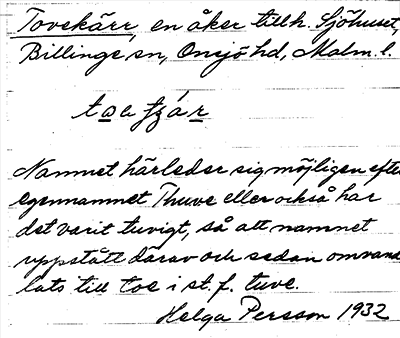 Tovekärr, en åker tillh. Sjöhuset,
Billinge sn, Onsjö hd, Malm. l.
Namnet härleder sig möjligen efter
egennamnet Thuve eller också har
det varit tuvigt, så att namnet
uppstått därav och sedan omvand
lats till toe i st. f. tuve.
Helga Persson 1932